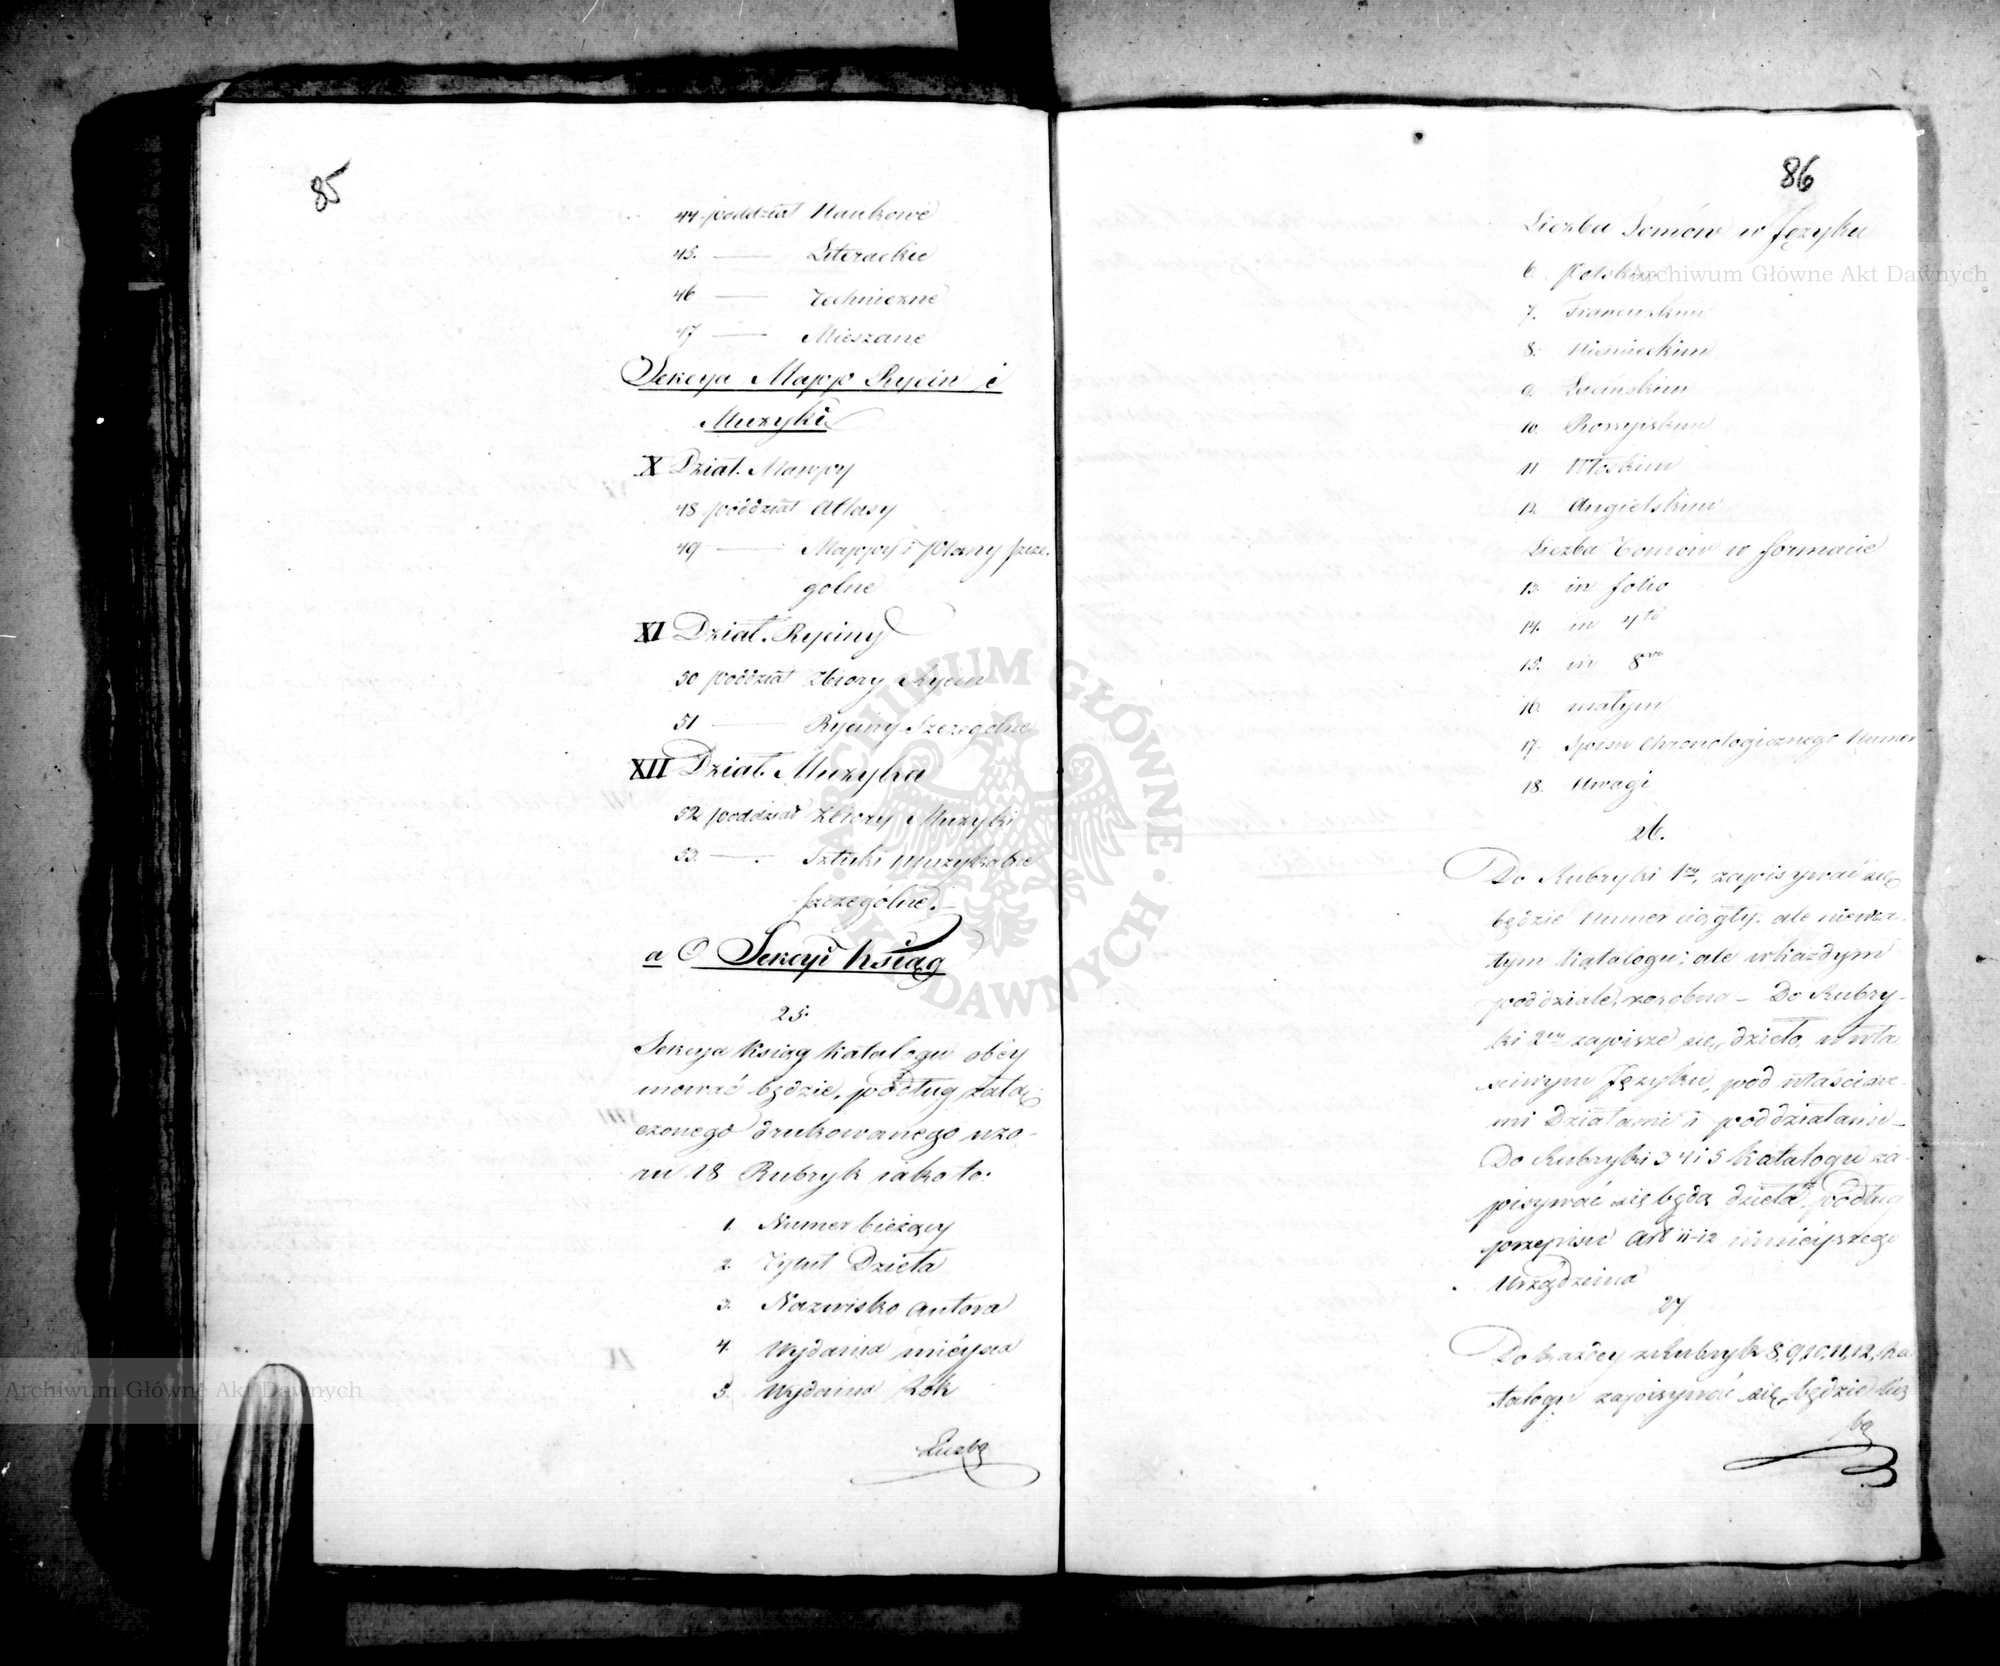 85
44. poddział Naukowe
45. — Literackie
46 — Techniczne
47 — Mieszane
Sekcya Mapp Rycin i
Muzyki
X Dział. Mappy
48 poddział Atlasy
49 — Mappy i Plany szcze-
golne
XI Dział. Ryciny
50 poddział Zbiory Rycin
51 — Ryciny Szczegolne
XII Dział. Muzyka
52 poddział Zbiory Muzyki
53. — Sztuki muzykalne
szczególne.
a O Sekcyi Ksiąg
25.
Sekcya Ksiąg Katalogu obéy
mować będzie, podług załą-
czonego drukowanego wzo-
ru 18 Rubryk iako to:
1. Numer bieżący
2. Tytuł Dzieła
3. Nazwisko autora
4. Wydania mieysce
5. Wydania Rok
Liczba
86
Liczba Tomów w Języku
6. Polskim
7. Francuskim
8. Niemieckim
9. Łacińskim
10. Rossyiskim
11 Włoskim
12. Angielskim
Liczba Tomów w formacie
13. in folio
14. in 4to
15. in 8vo
16. małym
17. Spisu Chronologicznego Numer
18. Uwagi
26.
Do Rubryki 1ey, zapisywać się
będzie numer ciągły: ale nie w ca-
łym Katalogu; ale w każdym
poddziale, z osobna — Do Rubry-
ki 2ey zapisze się, dzieło, w wła
ściwym Języku, pod właściwe-
mi Działami i poddziałami —
Do Rubryki 3 4 i 5 Katalogu za-
pisywać się będą dzieła, podług
przepisu Art 11-12 ninieyszego
Urządzenia
27
Do każdey z Rubryk 8, 9, 10, 11, 12, Ka
talogu zapisywać się, będzie licz
ba
Archiwum Główne Akt Dawnych
Archiwum Główne Akt Dawnych
ARCHIWUM GŁÓWNE AKT DAWNYCH